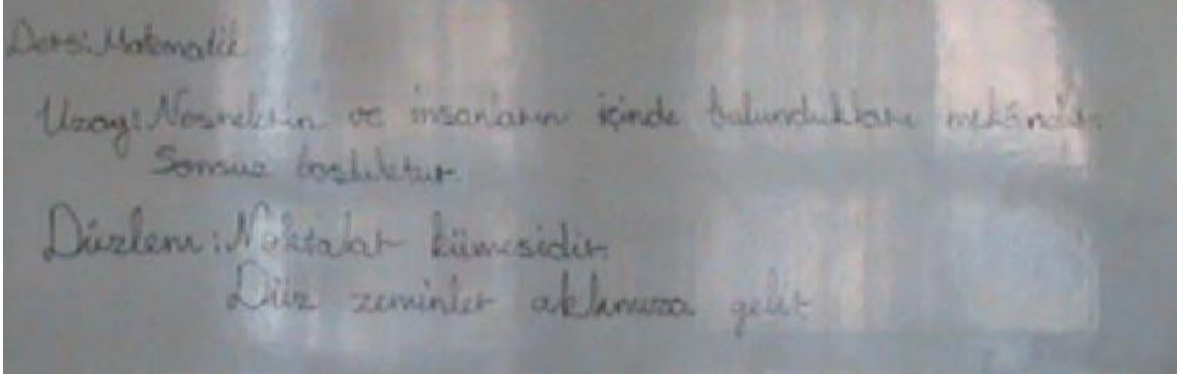 Ders: Matematik
Uzay: Nesnelerin ve insanların içinde bulundukları mekândır.
Sonsuz boşluktur.
Düzlem: Noktalar kümesidir.
Düz zeminler aklımıza gelir